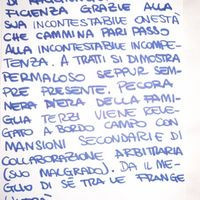 FICIENZA GRAZIE ALLA
SUA INCONTESTABILE ONESTÀ
CHE CAMMINA PARI PASSO
ALLA INCONTESTABILE INCOMPE-
TENZA. A TRATTI SI DIMOSTRA
PERMALOSO SEPPUR SEM-
PRE PRESENTE. PECORA
NERA DELLA FAMI-
GLIA TERZI VIENE RELE-
GATO A BORDO CAMPO CON
MANSIONI SECONDARIE DI
COLLABORAZIONE ARBITRARIA
(SUO MALGRADO). DA IL ME-
GLIO DI SÉ TRA LE FRANGE